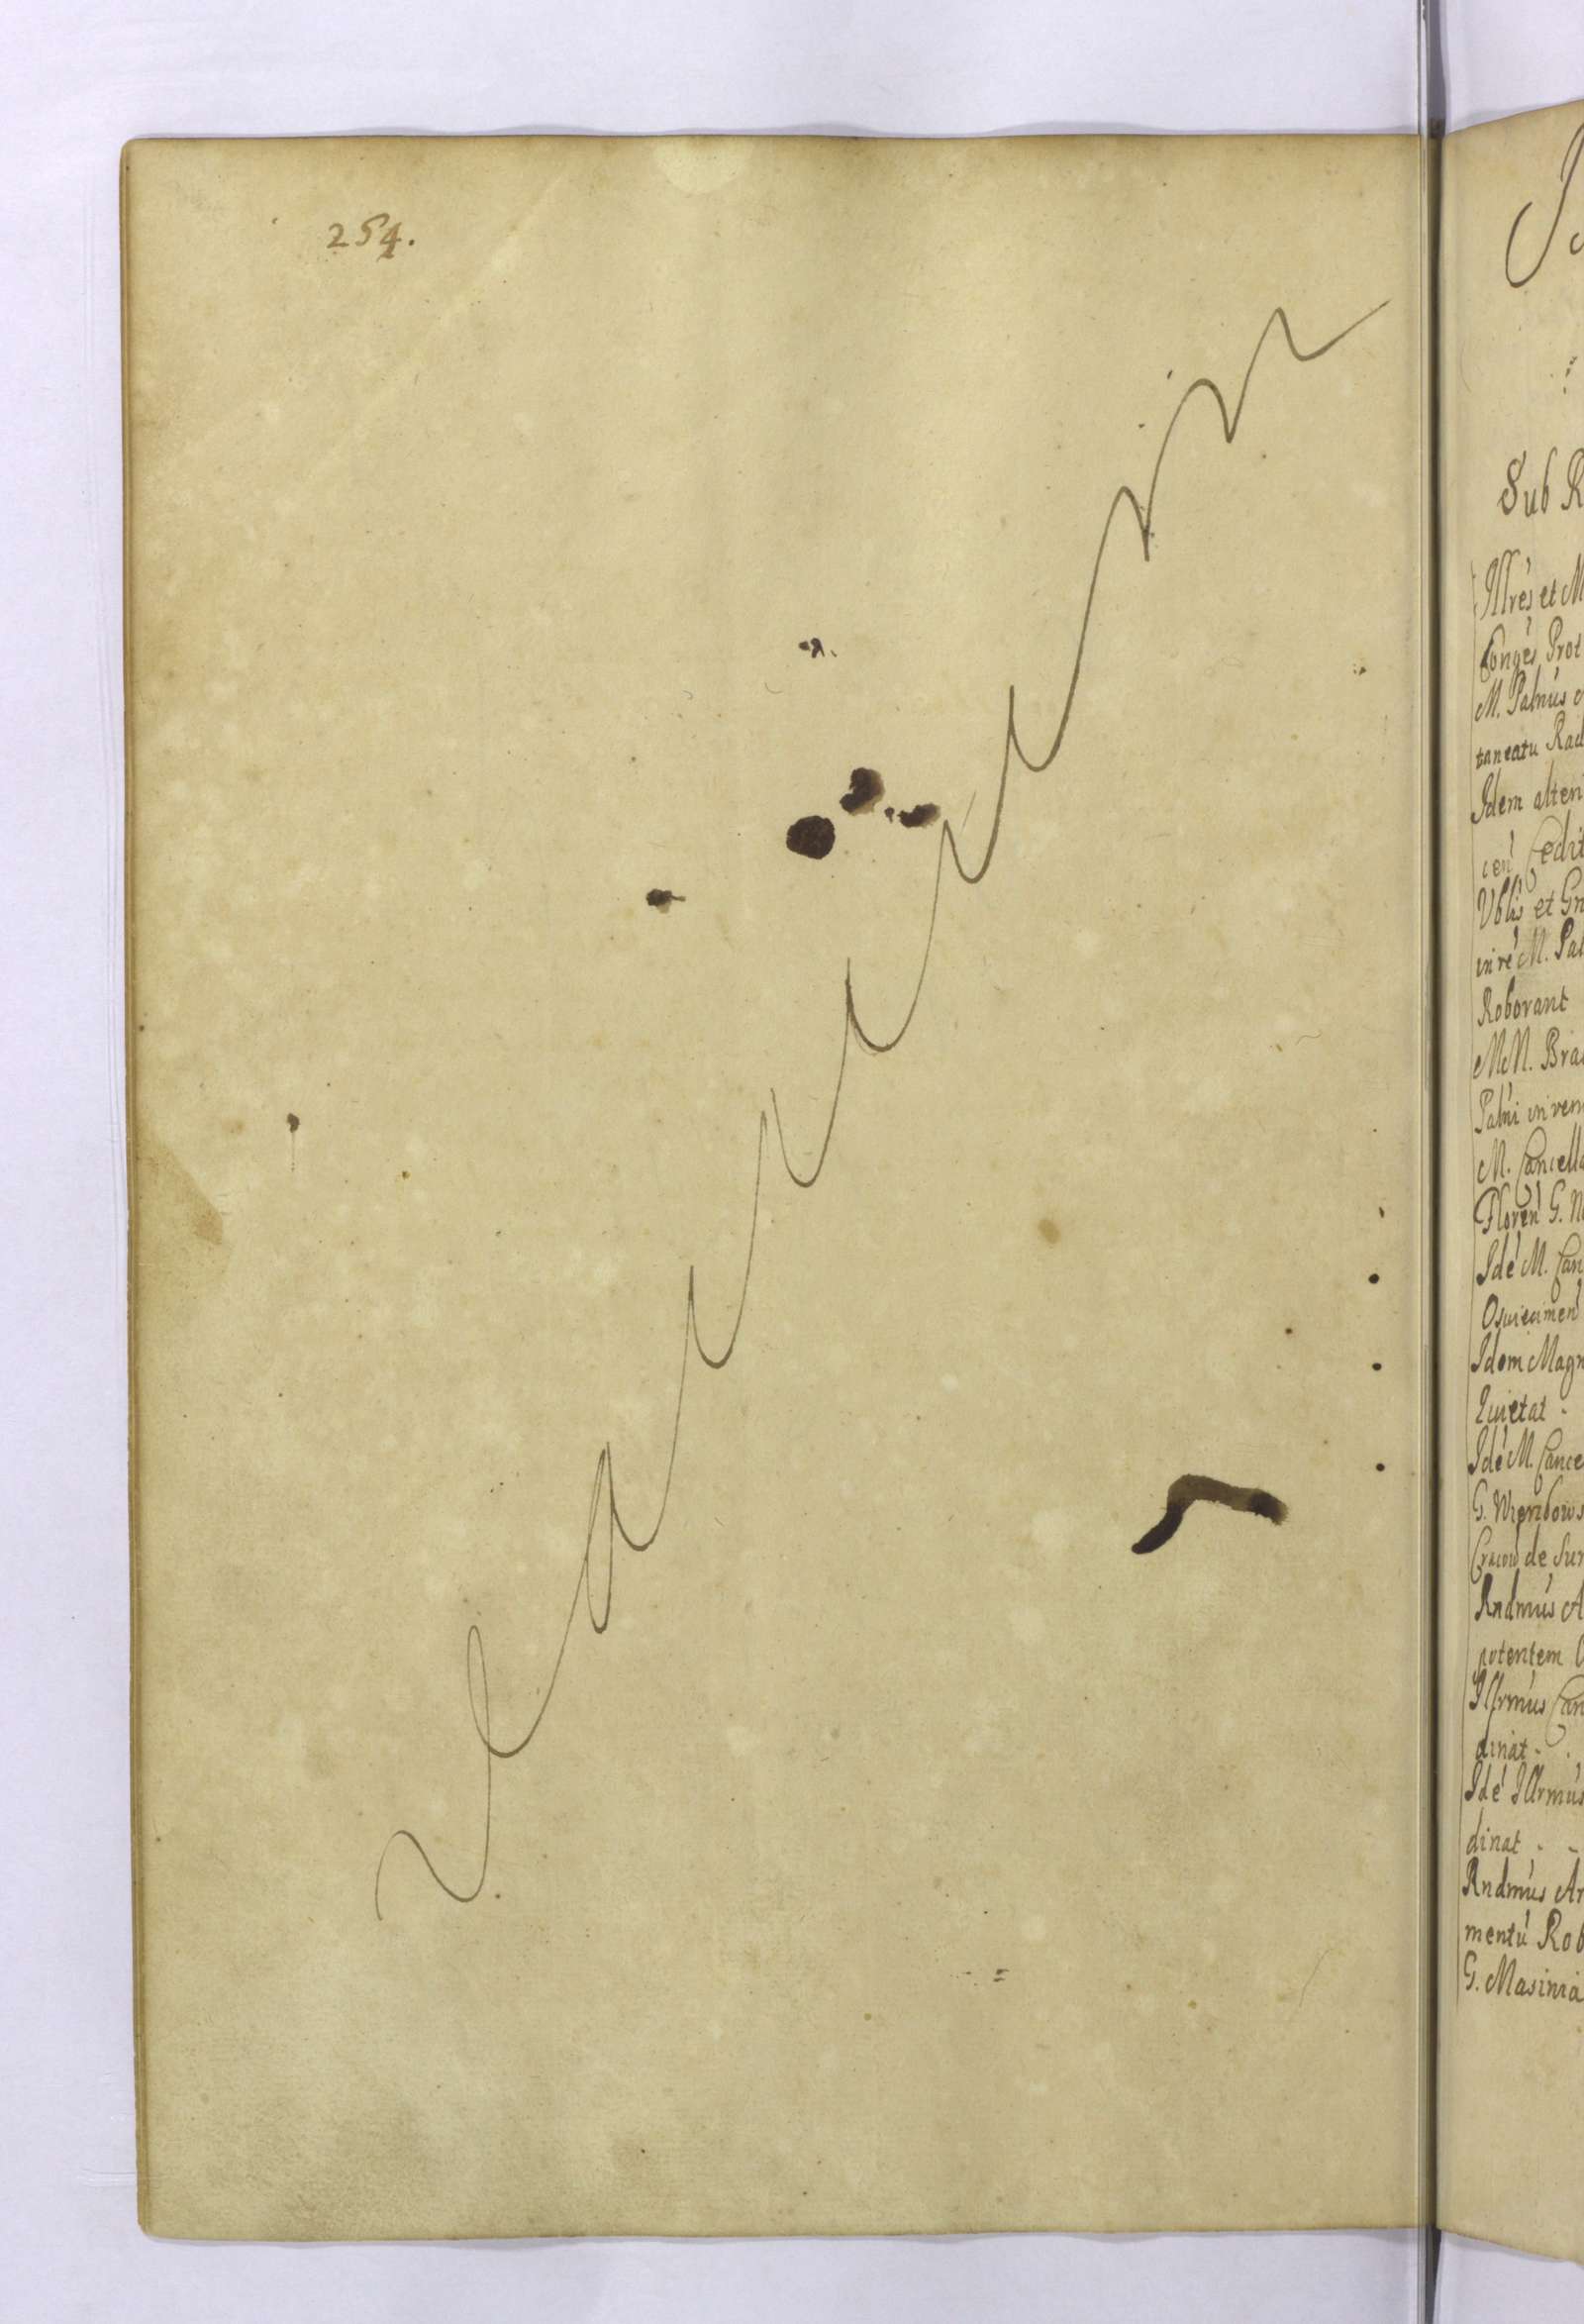 254.
Sub R
Illres et M
Conges Prot
M. Palnus
taneatu Rad
Idem alten
cen Cedit
Vblis et Gn
in re M. Pal
Roborant
MM. Bra
Palni in ven
M. Cancella
Floren G. N
Ide M. Can
Oswiecimen
Idem Magn
Quietat -
Ide M. Cance
G. Wierzbows
Cracov de Sur
Rndmus A
potentem
Illrmus Can
dinat -
Ide Illrmus
dinat - -
Rndmus Ar
mentu Rob
G. Masinia